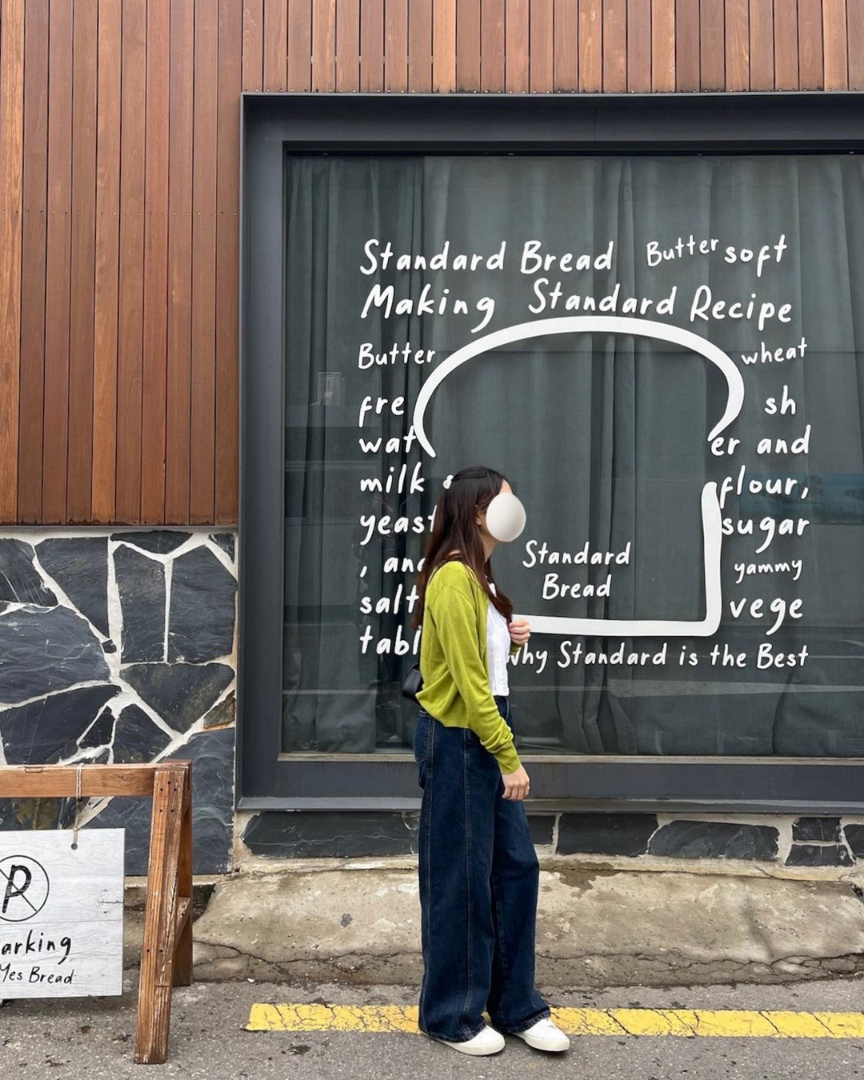 Standard Bread Butter soft
Making Standard Recipe
Butter wheat
fre sh
wat er and
milk flour,
yeast sugar
, and yammy
salt vege
tabl
Standard
Bread
Why Standard is the Best
P
arking
Yes Bread